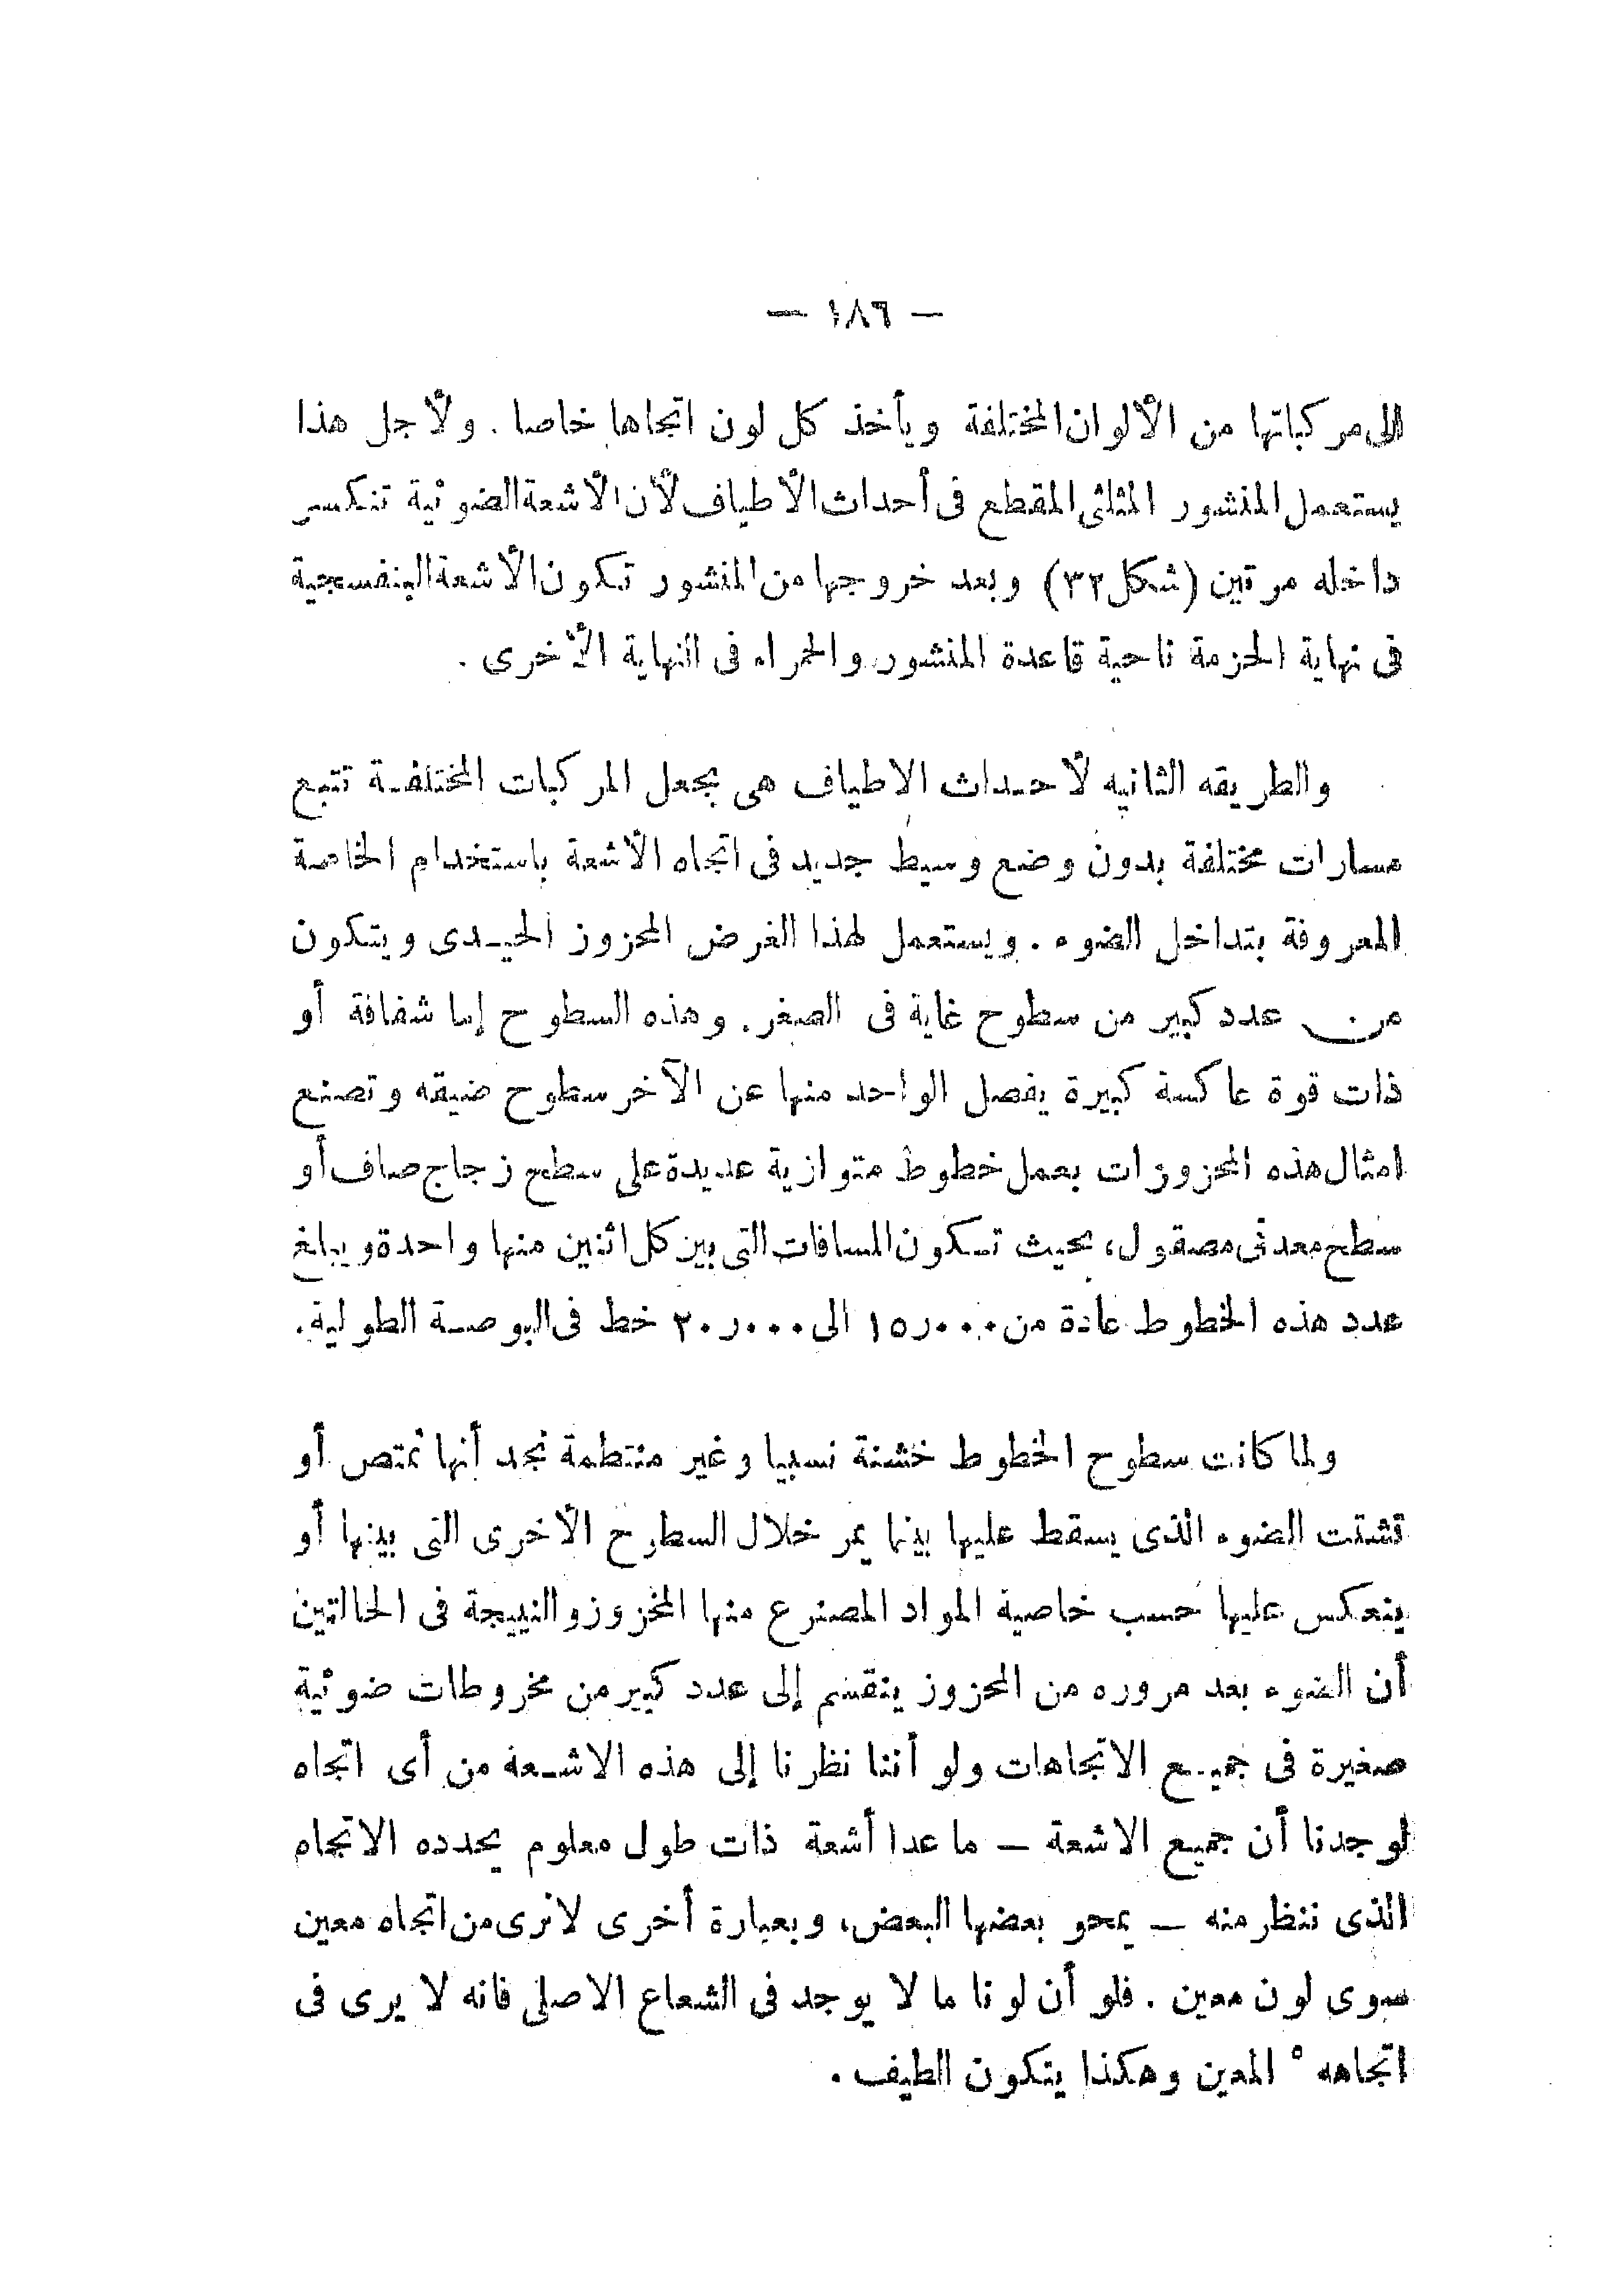 — ١٨٦ —
الى مركباتها من الألوان المختلفة ويأخذ كل لون اتجاها خاصا . ولأجل هذا
يستعمل المنشور المثلثى المقطع فى أحداث الأطياف لأن الأشعة الضوئية تنكسر
داخله مرتين (شكل ٣٢) وبعد خروجها من المنشور تكون الأشعة البنفسجية
فى نهاية الحزمة ناحية قاعدة المنشور والحمراء فى النهاية الأخرى .
والطريقه الثانيه لأحداث الاطياف هى بجعل المركبات المختلفة تتبع
مسارات مختلفة بدون وضع وسيط جديد فى اتجاه الأشعة باستخدام الخاصة
المعروفة بتداخل الضوء . ويستعمل لهذا الغرض المحزوز الحيدى ويتكون
من عدد كبير من سطوح غاية فى الصغر . وهذه السطوح إما شفافة أو
ذات قوة عاكسة كبيرة يفصل الواحد منها عن الآخر سطوح ضيقه وتصنع
امثال هذه المحزوزات بعمل خطوط متوازية عديدة على سطح زجاج صاف أو
سطح معدنى مصقول، بحيث تكون المسافات التى بين كل اثنين منها واحدة ويبلغ
عدد هذه الخطوط عادة من ١٥ر٠٠٠ الى ٢٠ر٠٠٠ خط فى البوصة الطولية.
ولما كانت سطوح الخطوط خشنة نسبيا وغير منتظمة نجد أنها تمتص أو
تشتت الضوء الذى يسقط عليها بينما يمر خلال السطوح الأخرى التى بينها أو
ينعكس عليها حسب خاصية المواد المصنوع منها المخزوز والنييجة فى الحالتين
أن الضوء بعد مروره من المحزوز ينقسم إلى عدد كبير من مخروطات ضوئية
صغيرة فى جميع الاتجاهات ولو أننا نظرنا إلى هذه الاشعة من أى اتجاه
لوجدنا أن جميع الاشعة — ما عدا أشعة ذات طول معلوم يحدده الاتجاه
الذى ننظر منه — يمحو بعضها البعض، وبعبارة أخرى لا نرى من اتجاه معين
سوى لون معين . فلو أن لونا ما لا يوجد فى الشعاع الاصلى فانه لا يرى فى
اتجاهه المعين وهكذا يتكون الطيف .